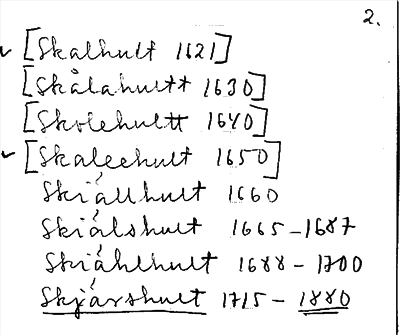 2.
✓ [Skalhult 1621]
[Skålahultt 1630]
[Skolehultt 1640]
✓ [Skaleehult 1650]
Skiállhult 1660
Skiálshult 1665-1687
Skiáhlhult 1688-1700
Skjárshult 1715-1880